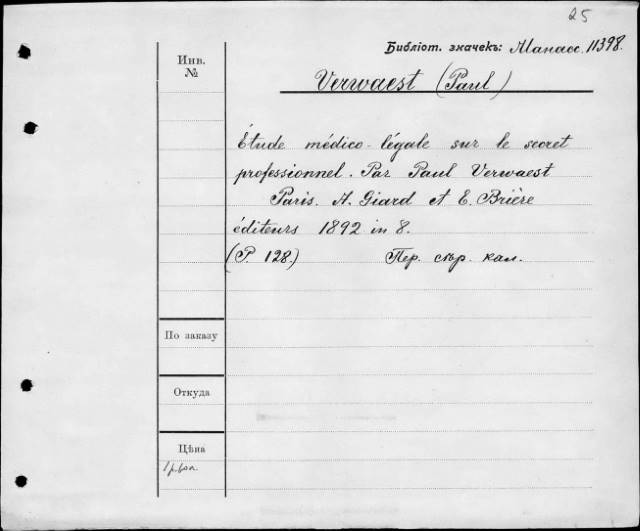 25
Библіот. значекъ: Манасс. 11398.
Инв.
№
Verwaest (Paul)
Étude médico-légale sur le secret
professionnel. Par Paul Verwaest
Paris. A. Giard et E. Brière
éditeurs 1892 in 8.
(P. 128.) Пер. сѣр. кал.
По заказу
Откуда
Цѣна